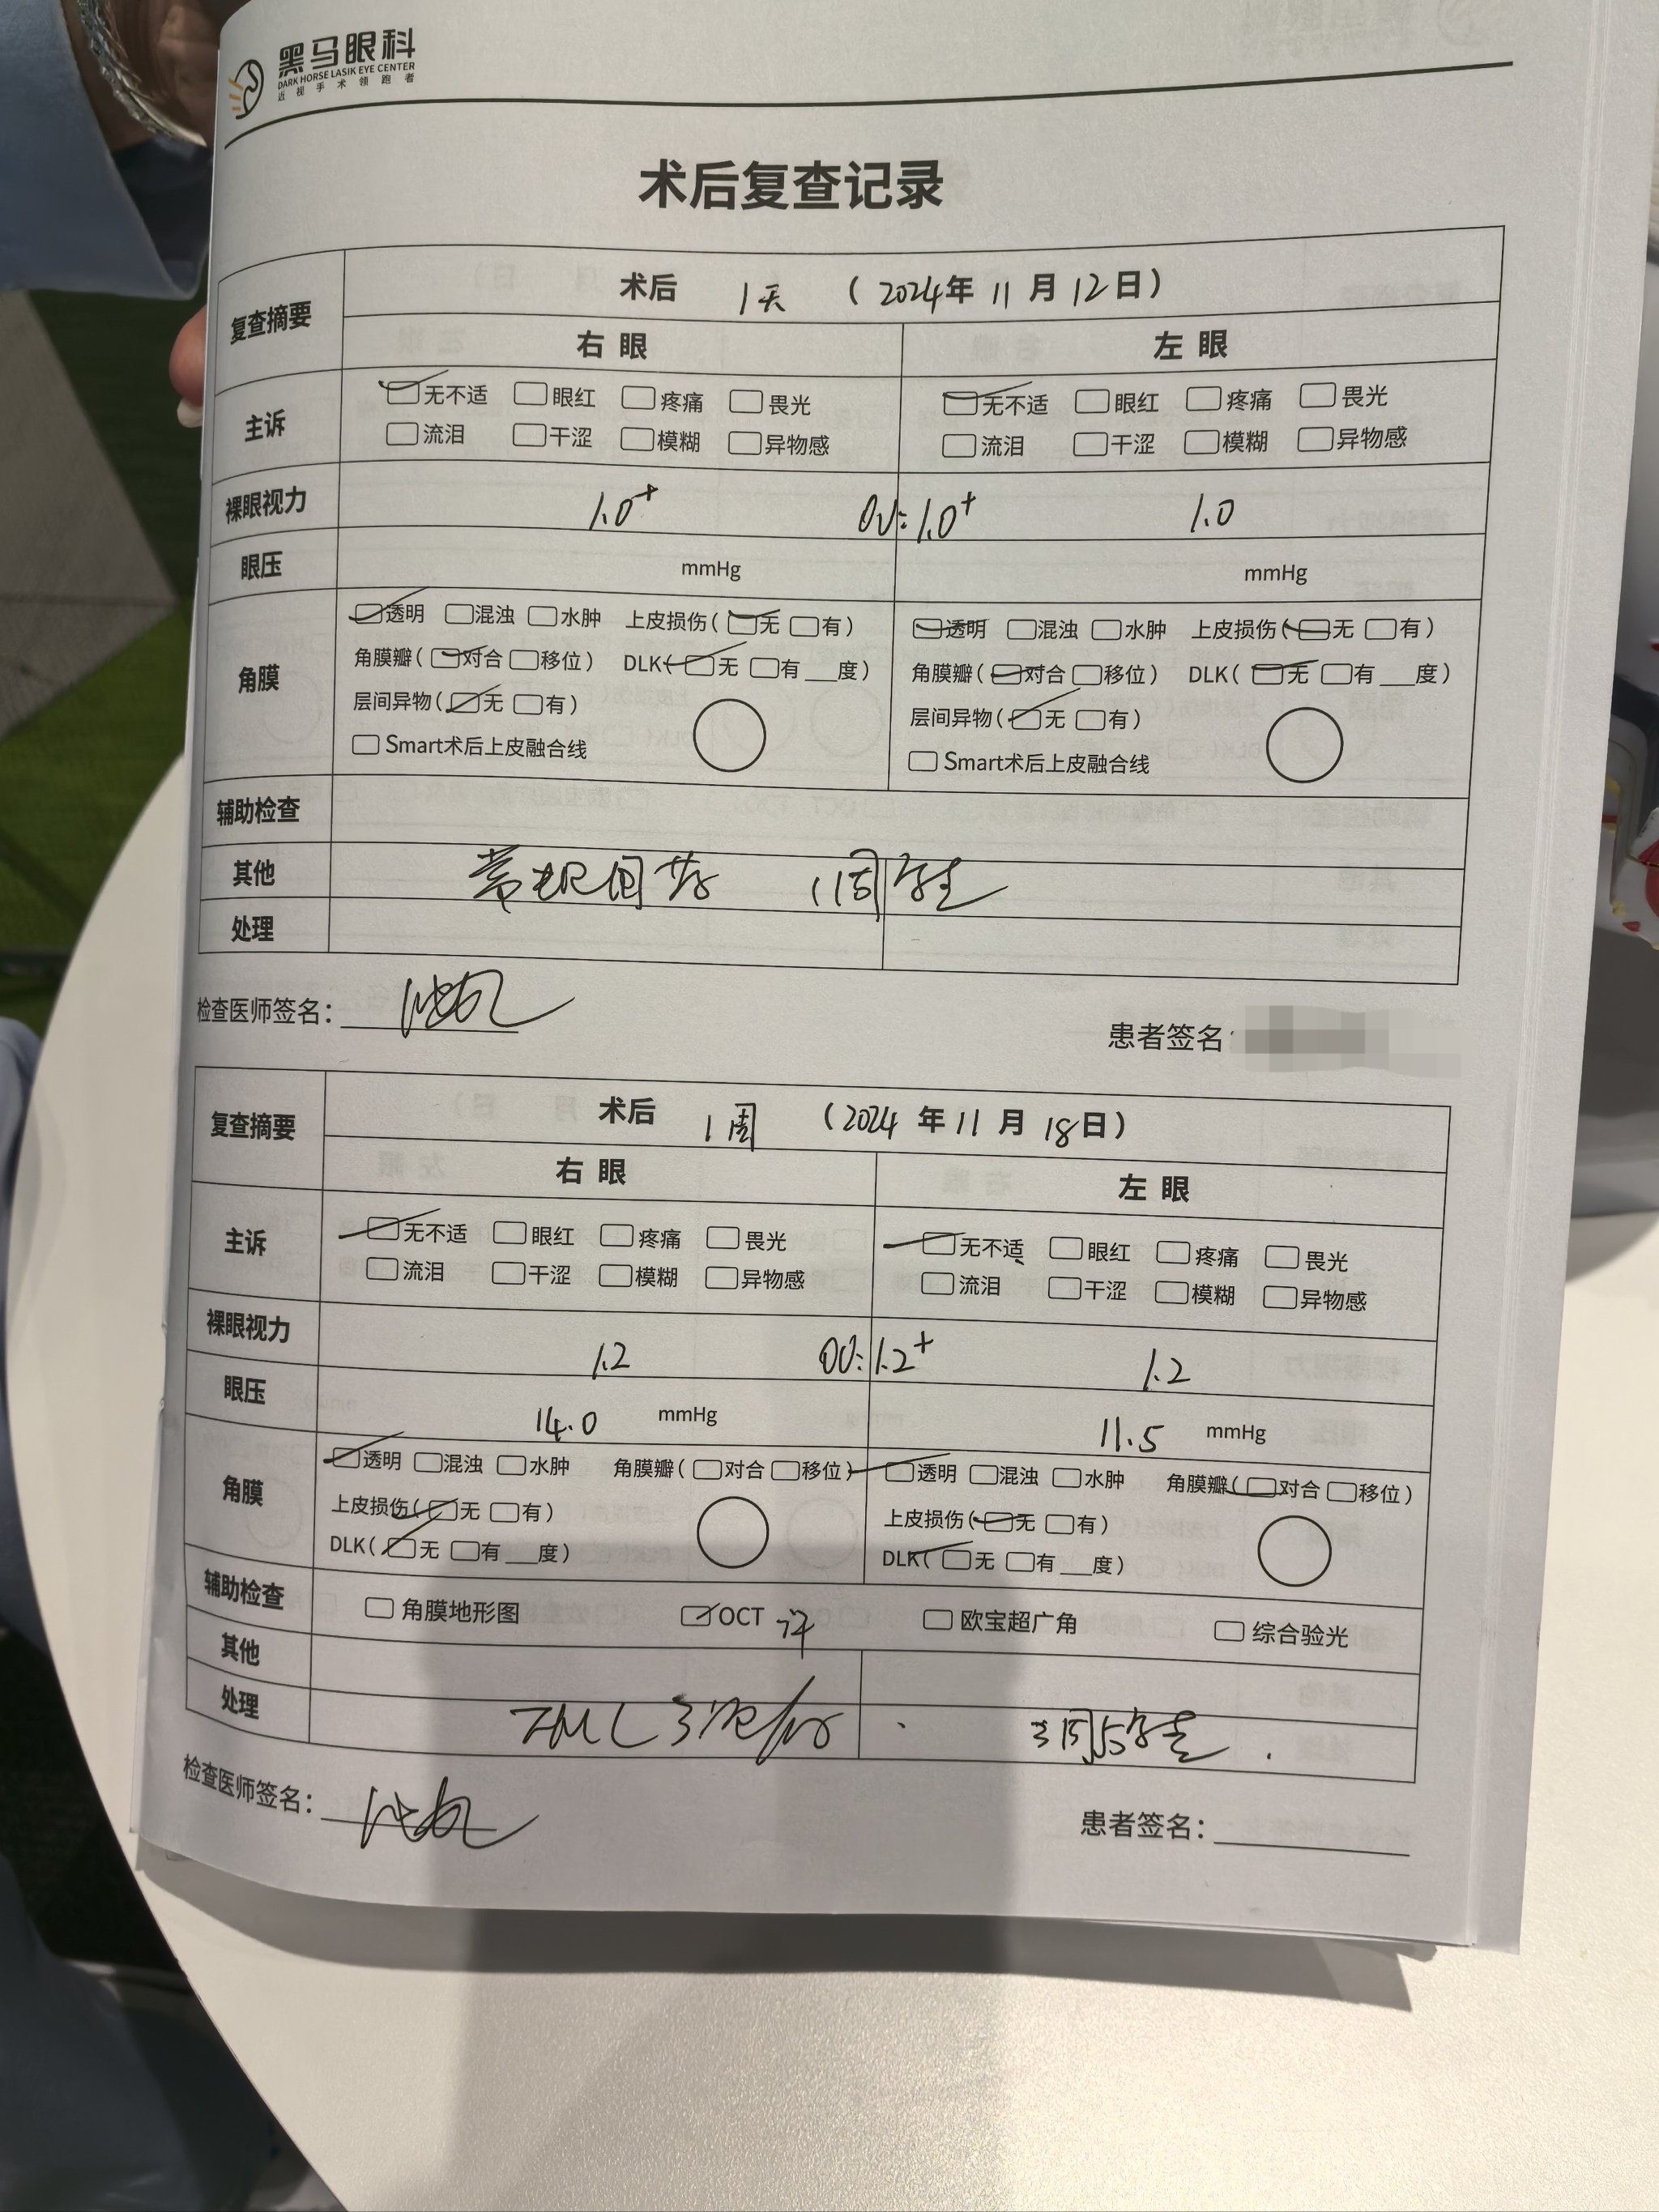 黑马眼科
DARK HORSE LASIK EYE CENTER
近视手术领跑者
术后复查记录
复查摘要 术后 1天 (2024年 11 月 12日)
右眼 左眼
主诉 无不适 眼红 疼痛 畏光 无不适 眼红 疼痛 畏光
流泪 干涩 模糊 异物感 流泪 干涩 模糊 异物感
裸眼视力 1.0+ OU: 1.0+ 1.0
眼压 mmHg mmHg
角膜 透明 混浊 水肿 上皮损伤(无 有) 透明 混浊 水肿 上皮损伤(无 有)
角膜瓣(对合 移位) DLK(无 有__度) 角膜瓣(对合 移位) DLK(无 有__度)
层间异物(无 有) 层间异物(无 有)
Smart术后上皮融合线 Smart术后上皮融合线
辅助检查
其他 常规用药 1周
处理
检查医师签名: 患者签名
复查摘要 术后 1周 (2024年 11 月 18日)
右眼 左眼
主诉 无不适 眼红 疼痛 畏光 无不适 眼红 疼痛 畏光
流泪 干涩 模糊 异物感 流泪 干涩 模糊 异物感
裸眼视力 1.2 OU: 1.2+ 1.2
眼压 14.0 mmHg 11.5 mmHg
角膜 透明 混浊 水肿 角膜瓣(对合 移位) 透明 混浊 水肿 角膜瓣(对合 移位)
上皮损伤(无 有) 上皮损伤(无 有)
DLK(无 有__度) DLK(无 有__度)
辅助检查 角膜地形图 OCT 欧宝超广角 综合验光
其他
处理 3周
检查医师签名: 患者签名: